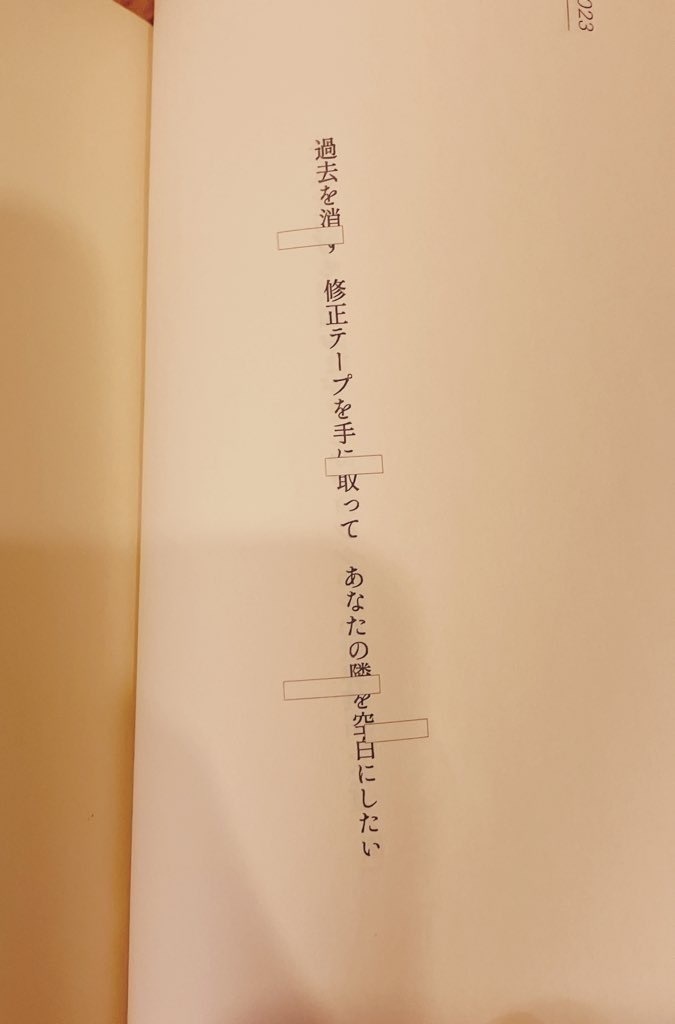 023
過去を消す　修正テープを手に取って　あなたの隣を空白にしたい